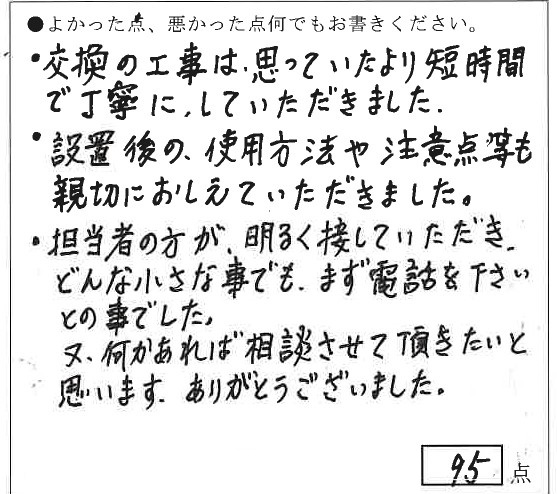 ●よかった点、悪かった点何でもお書きください。
・交換の工事は、思っていたより短時間
で丁寧に、していただきました.
・設置後の、使用方法や注意点等も
親切におしえていただきました。
・担当者の方が、明るく接していただき、
どんな小さな事でも、まず電話を下さい
との事でした。
又、何かあれば相談させて頂きたいと
思います、ありがとうございました。
95点